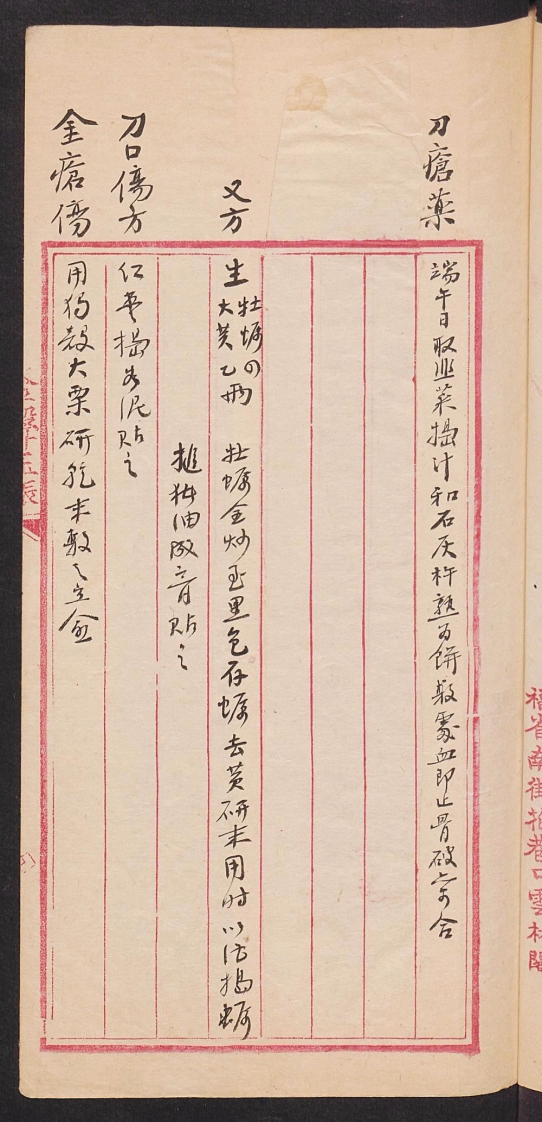 刀瘡薬
端午日取韮菜搗汁和石灰杵熟為餅敷處血即止骨破亦合
又方
生大黃乙両 牡蠣四
牡蠣仝炒至黑色存蠣去黃研末用時以活搗蠣
豬油成膏貼之
刀口傷方
紅棗搗為泥貼之
金瘡傷
用獨殼大栗研乾末敷之立愈
福省南街花巷口雲林閣